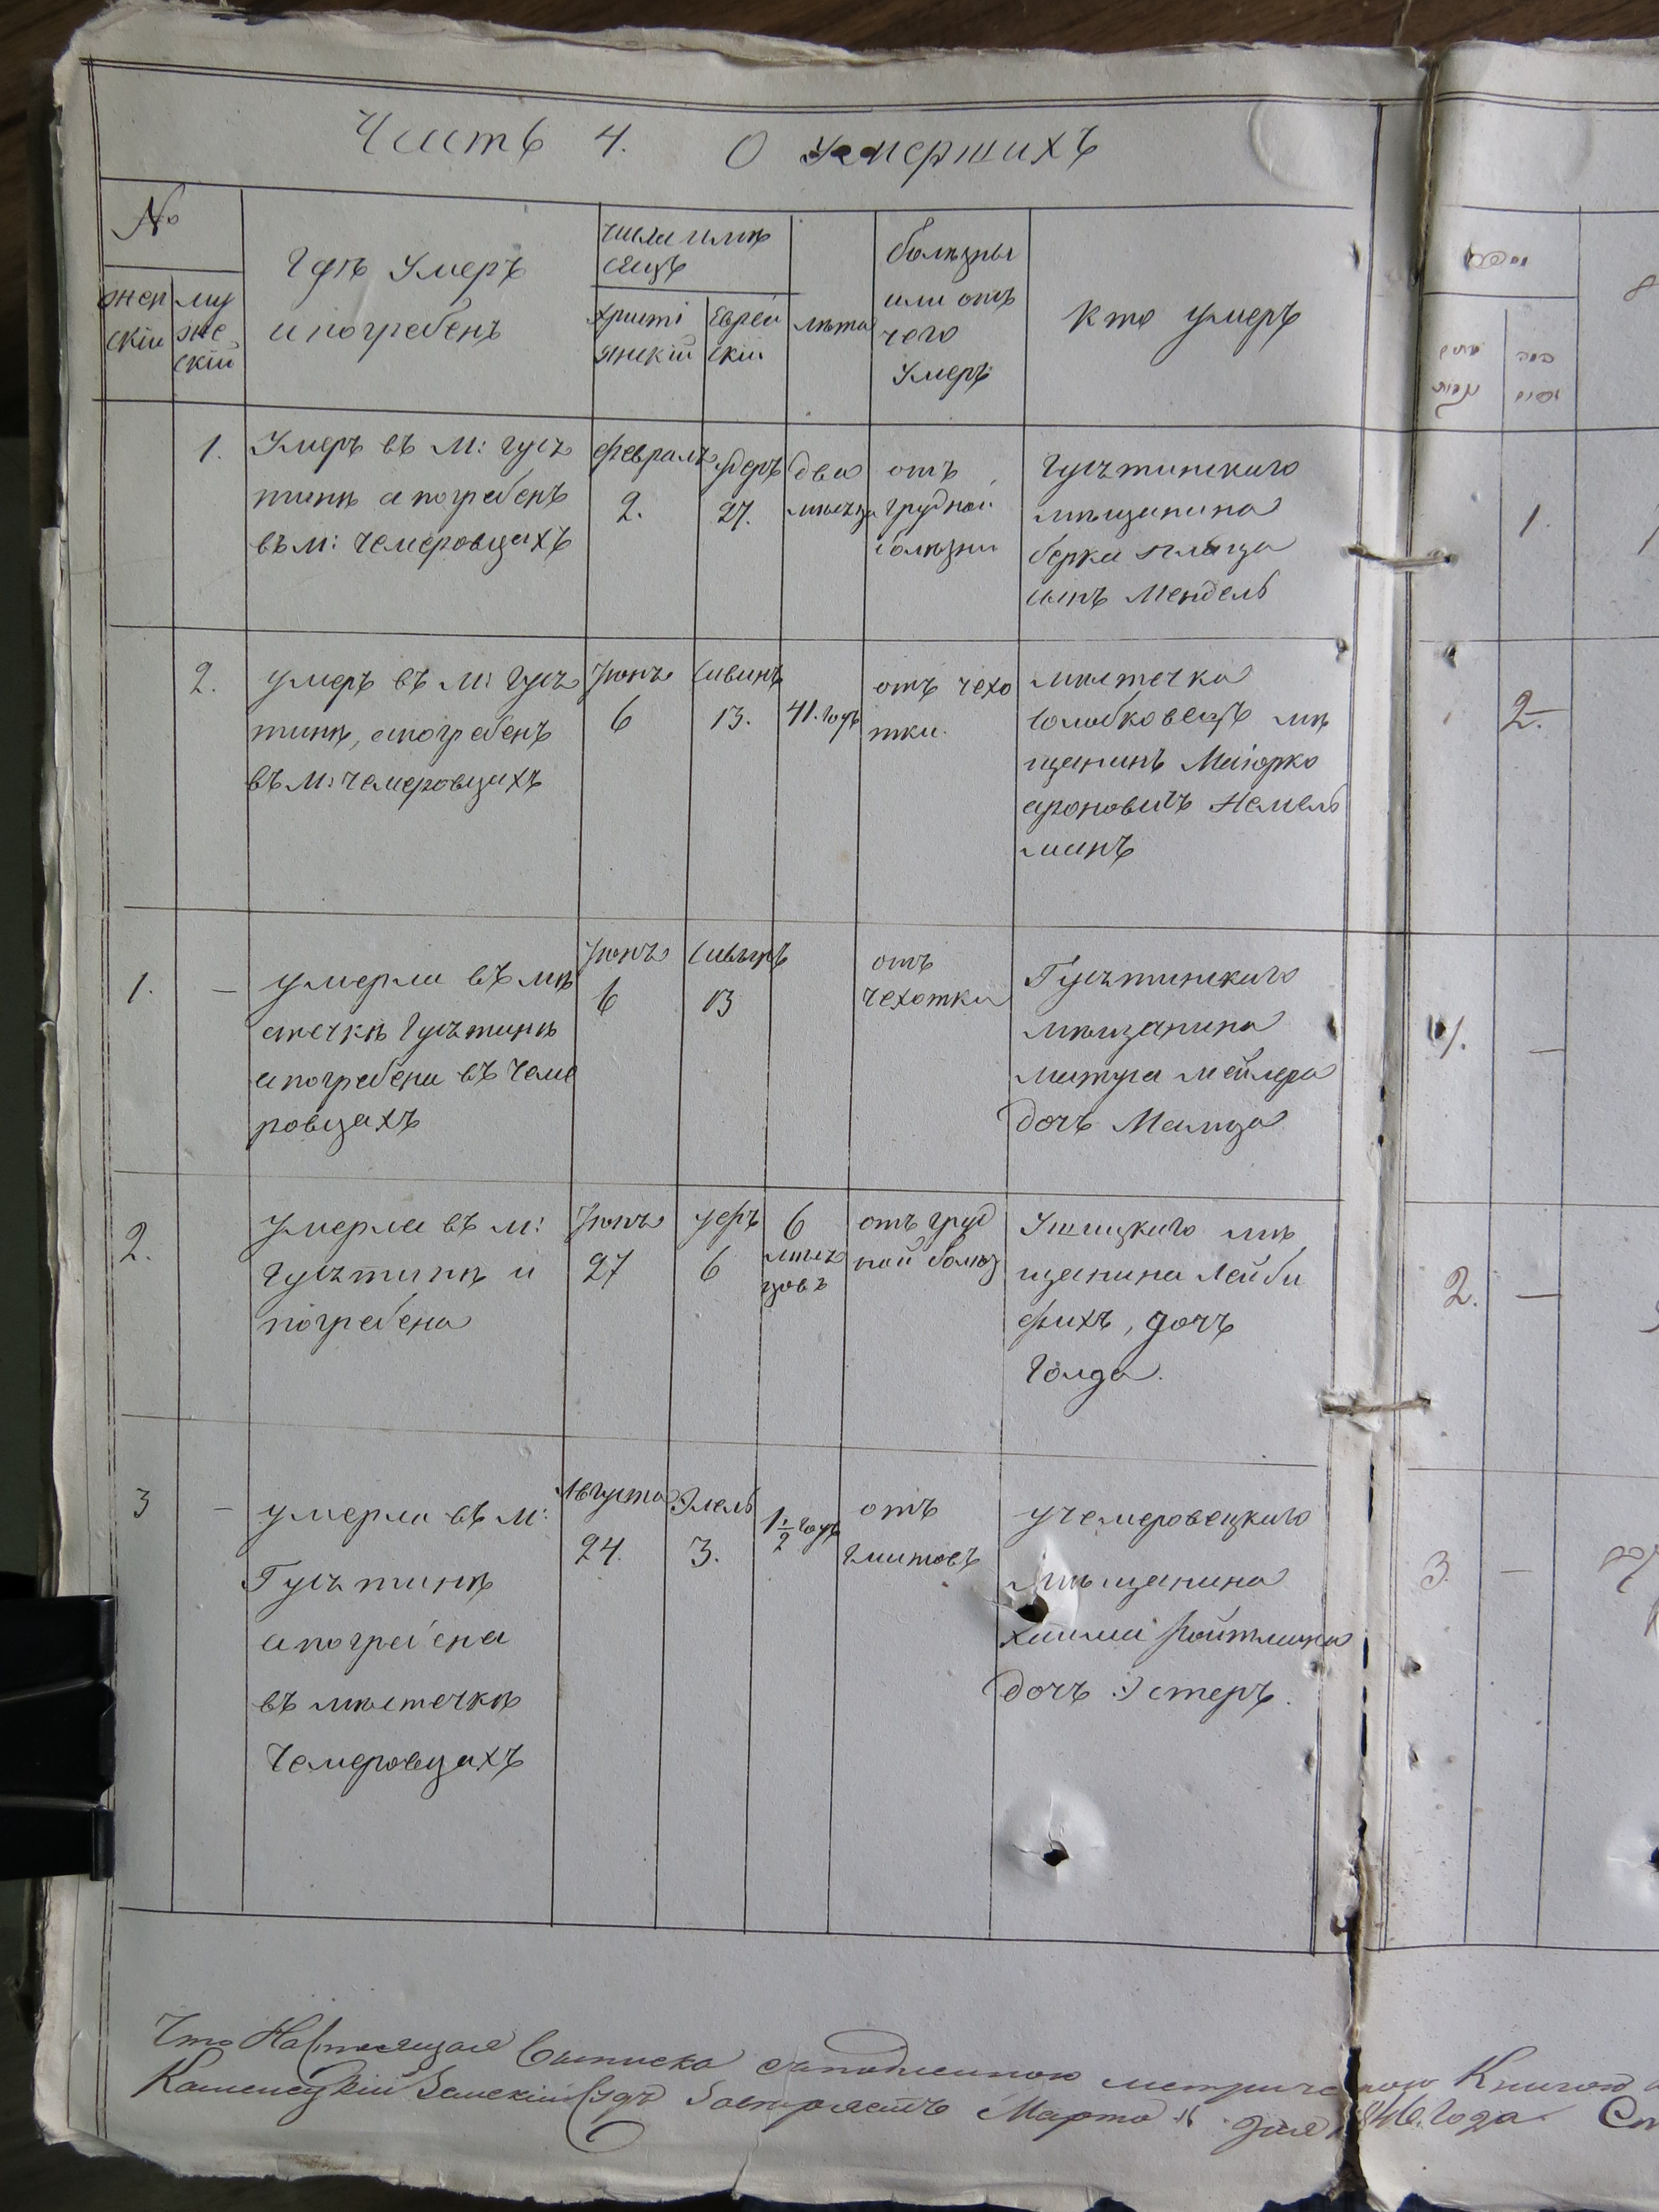 Часть 4. О умершихъ
№
женскій
мужескій
Гдѣ умеръ
и погребенъ
число и мѣ
сяцъ
христі
янскій
Еврей
скій
лѣта
болѣзны
или отъ
чего
умеръ
кто умеръ
1.
Умеръ въ м: Гусъ
тинѣ а погребенъ
въ м: Чемеровцахъ
февраль
2.
адеръ
27.
два
мѣсяца
отъ
грудной
болѣзни
Гусътинскаго
мѣщанина
берка
сынъ Мендель
2.
умеръ въ м: Гусъ
тинѣ, а погребенъ
въ м: Чемеровцахъ
Іюнь
6
Сивинъ
13.
41. годъ
отъ чехо
тки.
мѣстечка
Голобковецъ мѣ
щанинъ Маіорко
ароновичъ
манъ
1.
—
умерла въ мѣ
стечкѣ Гусътинѣ
а погребена въ Чеме
ровцахъ
Іюнь
6
Сивынъ
13
отъ
чехотки
Гусътинскаго
мѣщанина
Мейлера
дочь
2.
умерла въ м:
Гусътинѣ и
погребена
Іюнь
27
6
6
мѣсе
цовъ
отъ груд
ной болѣз
Ушицкаго мѣ
щанина Лейби
фихъ, дочъ
Голда.
3
—
умерла въ м:
Гусътинѣ
а погребена
въ мѣстечкѣ
Чемеровцахъ
Августа
24.
Элель
3.
1 1/2 годъ
отъ
глистовъ
учемеровецкаго
мѣщанина
хаима Ройтмана
дочъ Эстеръ.
1.
2.
1.
—
2.
—
3.
—
Что Настоящая выписка съ подлинною метрическою Книгою
Каменецкій Земскій Судъ Марта дня 1846. Года.